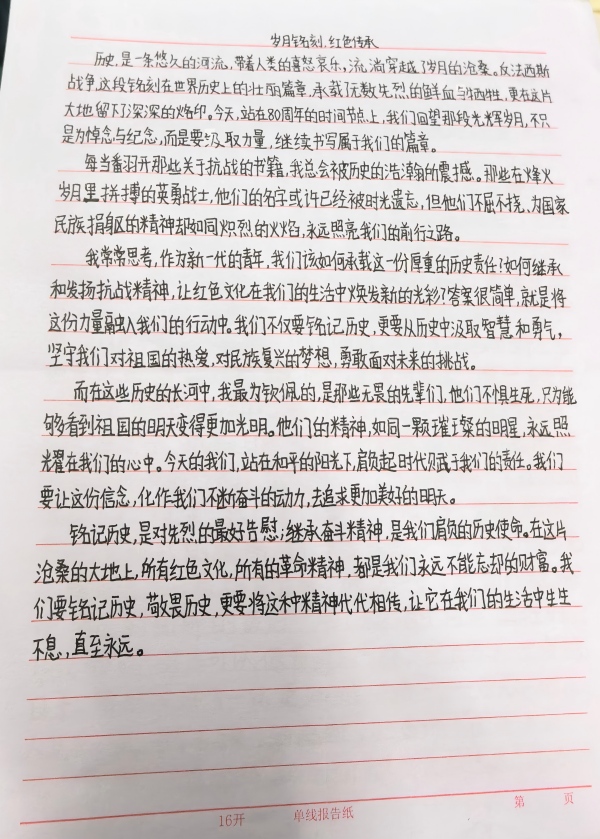 岁月铭刻,红色传承
历史,是一条悠久的河流,带着人类的喜怒哀乐,流淌穿越了岁月的沧桑。反法西斯
战争,这段铭刻在世界历史上的壮丽篇章,承载了无数先烈的鲜血与牺牲,更在这片
大地留下了深深的烙印。今天,站在80周年的时间节点上,我们回望那段光辉岁月,不只
是为悼念与纪念,而是要汲取力量,继续书写属于我们的篇章。
每当翻开那些关于抗战的书籍,我总会被历史的浩瀚的震撼。那些在烽火
岁月里拼搏的英勇战士,他们的名字或许已经被时光遗忘,但他们不屈不挠、为国家
民族捐躯的精神却如同炽烈的火焰,永远照亮我们的前行之路。
我常常思考,作为新一代的青年,我们该如何承载这一份厚重的历史责任?如何继承
和发扬抗战精神,让红色文化在我们的生活中焕发新的光彩?答案很简单,就是将
这份力量融入我们的行动中。我们不仅要铭记历史,更要从历史中汲取智慧和勇气,
坚守我们对祖国的热爱,对民族复兴的梦想,勇敢面对未来的挑战。
而在这些历史的长河中,我最为钦佩的,是那些无畏的先辈们,他们不惧生死,只为能
够多看到祖国的明天变得更加光明。他们的精神,如同一颗璀璨的明星,永远照
光耀在我们的心中。今天的我们,站在和平的阳光下,肩负起时代赋于我们的责任。我们
要让这份信念,化作我们不断奋斗的动力,去追求更加美好的明天。
铭记历史,是对先烈的最好告慰;继承奋斗精神,是我们肩负的历史使命。在这片
沧桑的大地上,所有红色文化,所有的革命精神,都是我们永远不能忘却的财富。我
们要铭记历史,敬畏历史,更要将这种精神代代相传,让它在我们的生活中生生
不息,直至永远。
16开 单线报告纸 第 页